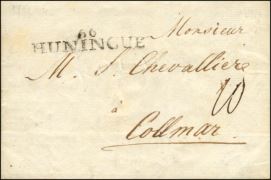 66
HUNINGUE
Monsieur
M. J. Chevalliere
à
Collmar.
10